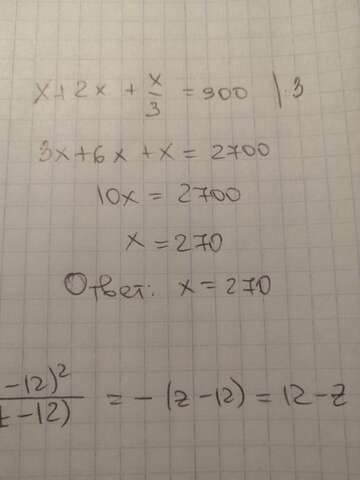 x + 2x + x/3 = 900 | · 3
3x + 6x + x = 2700
10x = 2700
x = 270
Ответ: x = 270
-12)² / z -12) = - (z - 12) = 12 - z